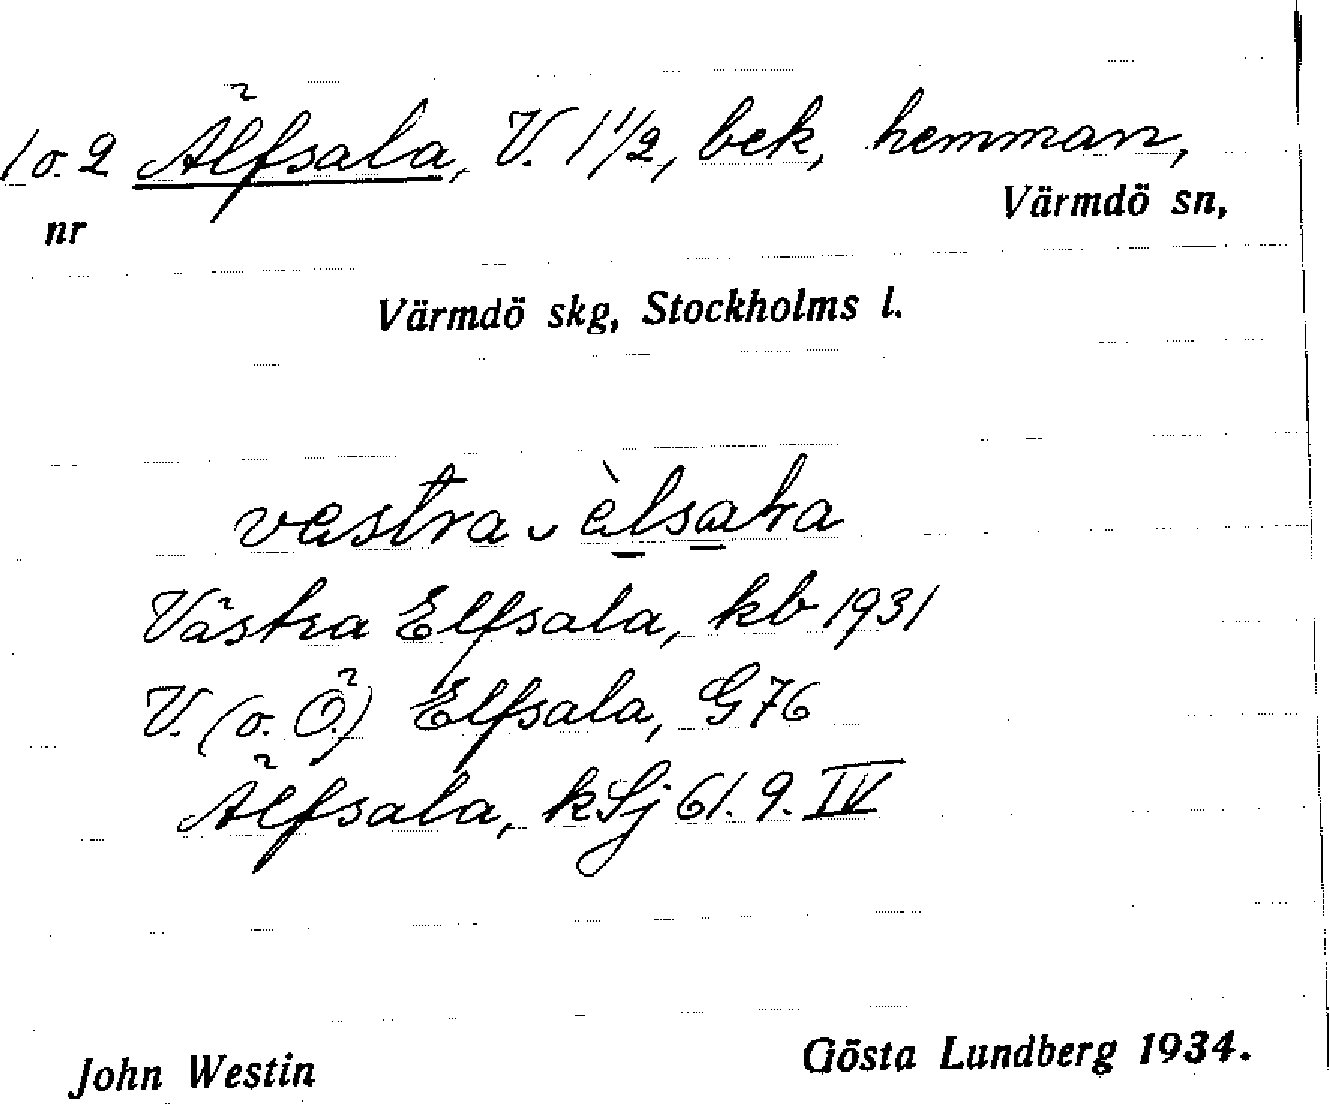 1 o. 2 Älfsala, V. 1 1/2, bek, hemman,
nr Värmdö sn,
Värmdö skg, Stockholms l.
vestra èlsala
Västra Elfsala, kb 1931
V. (o. Ö.) Elfsala, G76
Älfsala, kSj 61. 9. IV
John Westin Gösta Lundberg 1934.